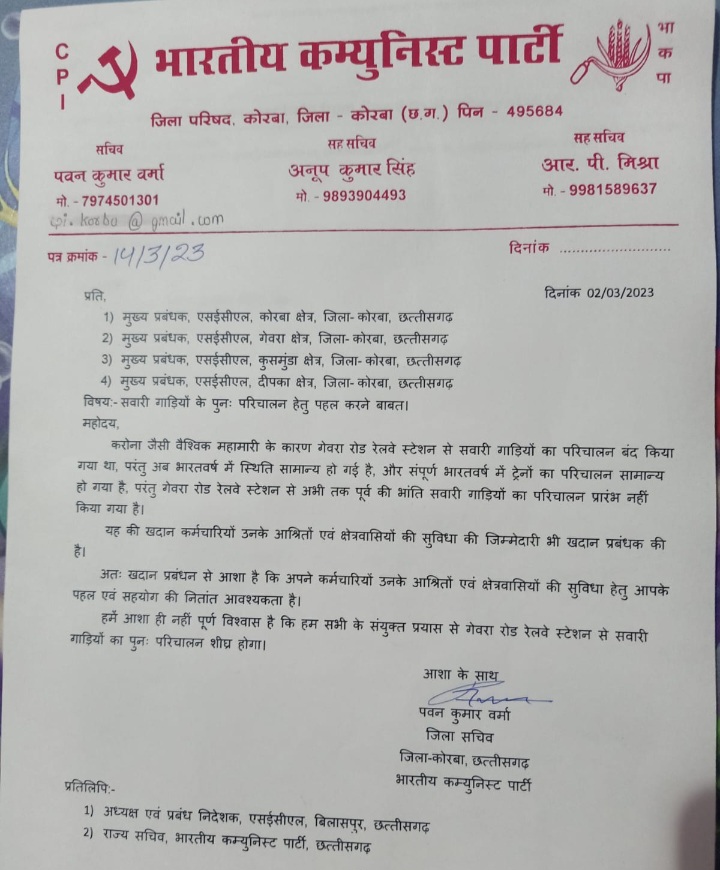 CPI भारतीय कम्युनिस्ट पार्टी भाकपा
जिला परिषद, कोरबा, जिला - कोरबा (छ.ग.) पिन - 495684
सचिव सह सचिव सह सचिव
पवन कुमार वर्मा अनूप कुमार सिंह आर. पी. मिश्रा
मो. - 7974501301 मो. - 9893904493 मो. - 9981589637
cpi.korba@gmail.com
पत्र क्रमांक - 14/3/23 दिनांक ..........................
प्रति, दिनांक 02/03/2023
1) मुख्य प्रबंधक, एसईसीएल, कोरबा क्षेत्र, जिला- कोरबा, छत्तीसगढ़
2) मुख्य प्रबंधक, एसईसीएल, गेवरा क्षेत्र, जिला- कोरबा, छत्तीसगढ़
3) मुख्य प्रबंधक, एसईसीएल, कुसमुंडा क्षेत्र, जिला- कोरबा, छत्तीसगढ़
4) मुख्य प्रबंधक, एसईसीएल, दीपका क्षेत्र, जिला- कोरबा, छत्तीसगढ़
विषय:- सवारी गाड़ियों के पुनः परिचालन हेतु पहल करने बाबत।
महोदय,
करोना जैसी वैश्विक महामारी के कारण गेवरा रोड रेलवे स्टेशन से सवारी गाड़ियों का परिचालन बंद किया
गया था, परंतु अब भारतवर्ष में स्थिति सामान्य हो गई है, और संपूर्ण भारतवर्ष में ट्रेनों का परिचालन सामान्य
हो गया है, परंतु गेवरा रोड रेलवे स्टेशन से अभी तक पूर्व की भांति सवारी गाड़ियों का परिचालन प्रारंभ नहीं
किया गया है।
यह की खदान कर्मचारियों उनके आश्रितों एवं क्षेत्रवासियों की सुविधा की जिम्मेदारी भी खदान प्रबंधक की
है।
अतः खदान प्रबंधन से आशा है कि अपने कर्मचारियों उनके आश्रितों एवं क्षेत्रवासियों की सुविधा हेतु आपके
पहल एवं सहयोग की नितांत आवश्यकता है।
हमें आशा ही नहीं पूर्ण विश्वास है कि हम सभी के संयुक्त प्रयास से गेवरा रोड रेलवे स्टेशन से सवारी
गाड़ियों का पुनः परिचालन शीघ्र होगा।
आशा के साथ
पवन कुमार वर्मा
जिला सचिव
जिला-कोरबा, छत्तीसगढ़
भारतीय कम्युनिस्ट पार्टी
प्रतिलिपि:-
1) अध्यक्ष एवं प्रबंध निदेशक, एसईसीएल, बिलासपुर, छत्तीसगढ़
2) राज्य सचिव, भारतीय कम्युनिस्ट पार्टी, छत्तीसगढ़